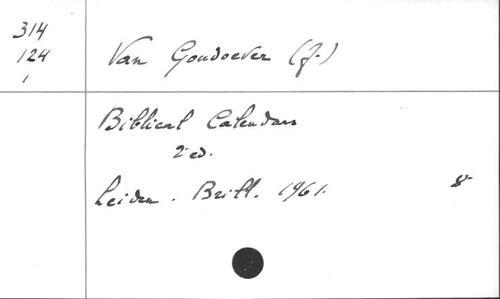 314
124
1
Van Goudoever (J.)
Biblical Calendars
2 ed.
Leiden. Brill. 1961.
8